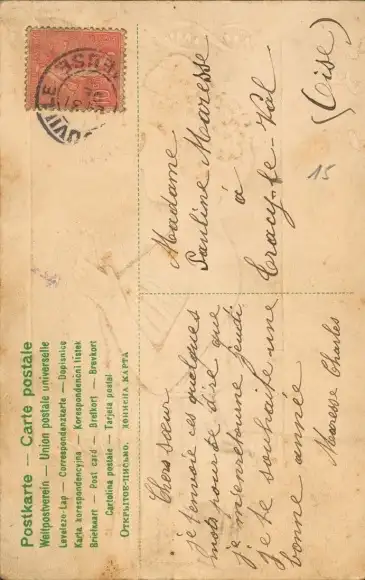 Postkarte — Carte postale
Weltpostverein — Union postale universelle
Levelezo-Lap — Correspondenzkarte — Dopisnice
Karta korespondencyjna — Korespondenční lístek
Briefkaart — Post card — Brefkort — Brevkort
Cartolina postale — Tarjeta postal
Открытое письмо.
Chère sœur
je t'envoie ces quelques
mots pour te dire que
je m'en retourne jeudi
je te souhaite une
bonne année
Maresse Charles
Madame
Pauline Maresse
à
Tracy-le-Val
(Oise)
15
MEUSE